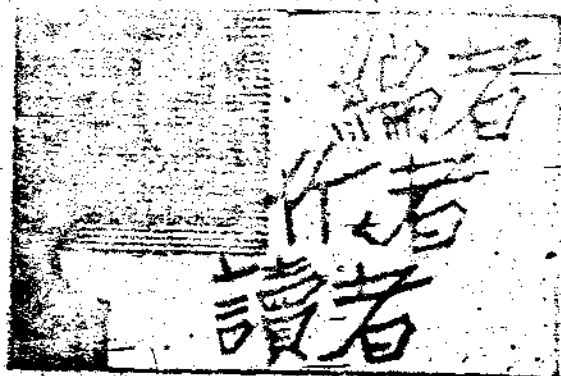 編者
作者
讀者